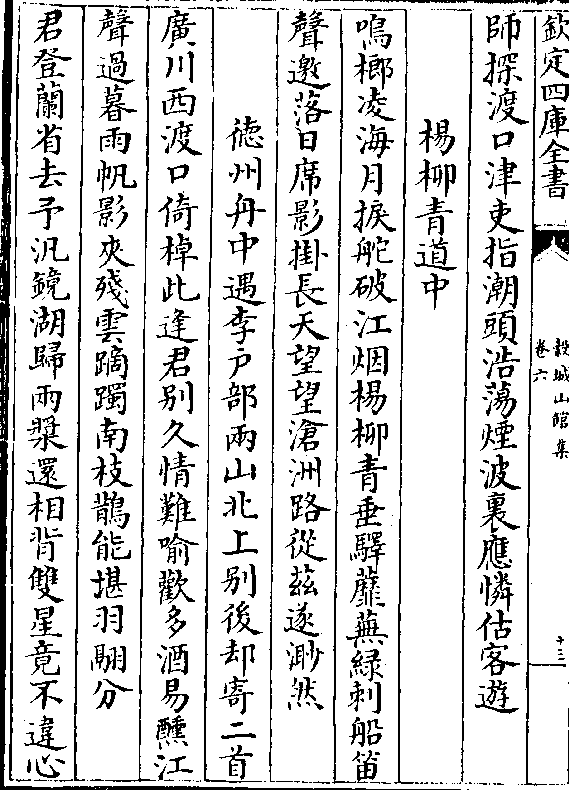 欽定四庫全書
穀城山館集
卷六
十三
師探渡口津吏指潮頭浩蕩煙波裏應憐估客遊
楊柳青道中
鳴榔凌海月捩舵破江烟楊柳青垂驛蘼蕪綠刺船笛
聲邀落日席影掛長天望望滄洲路從兹遂渺然
德州舟中遇李户部兩山北上别後却寄二首
廣川西渡口倚棹此逢君别久情難喻歡多酒易醺江
聲過暮雨帆影夾殘雲躑躅南枝鵲能堪羽翮分
君登蘭省去予汎鏡湖歸兩槳還相背雙星竟不違心